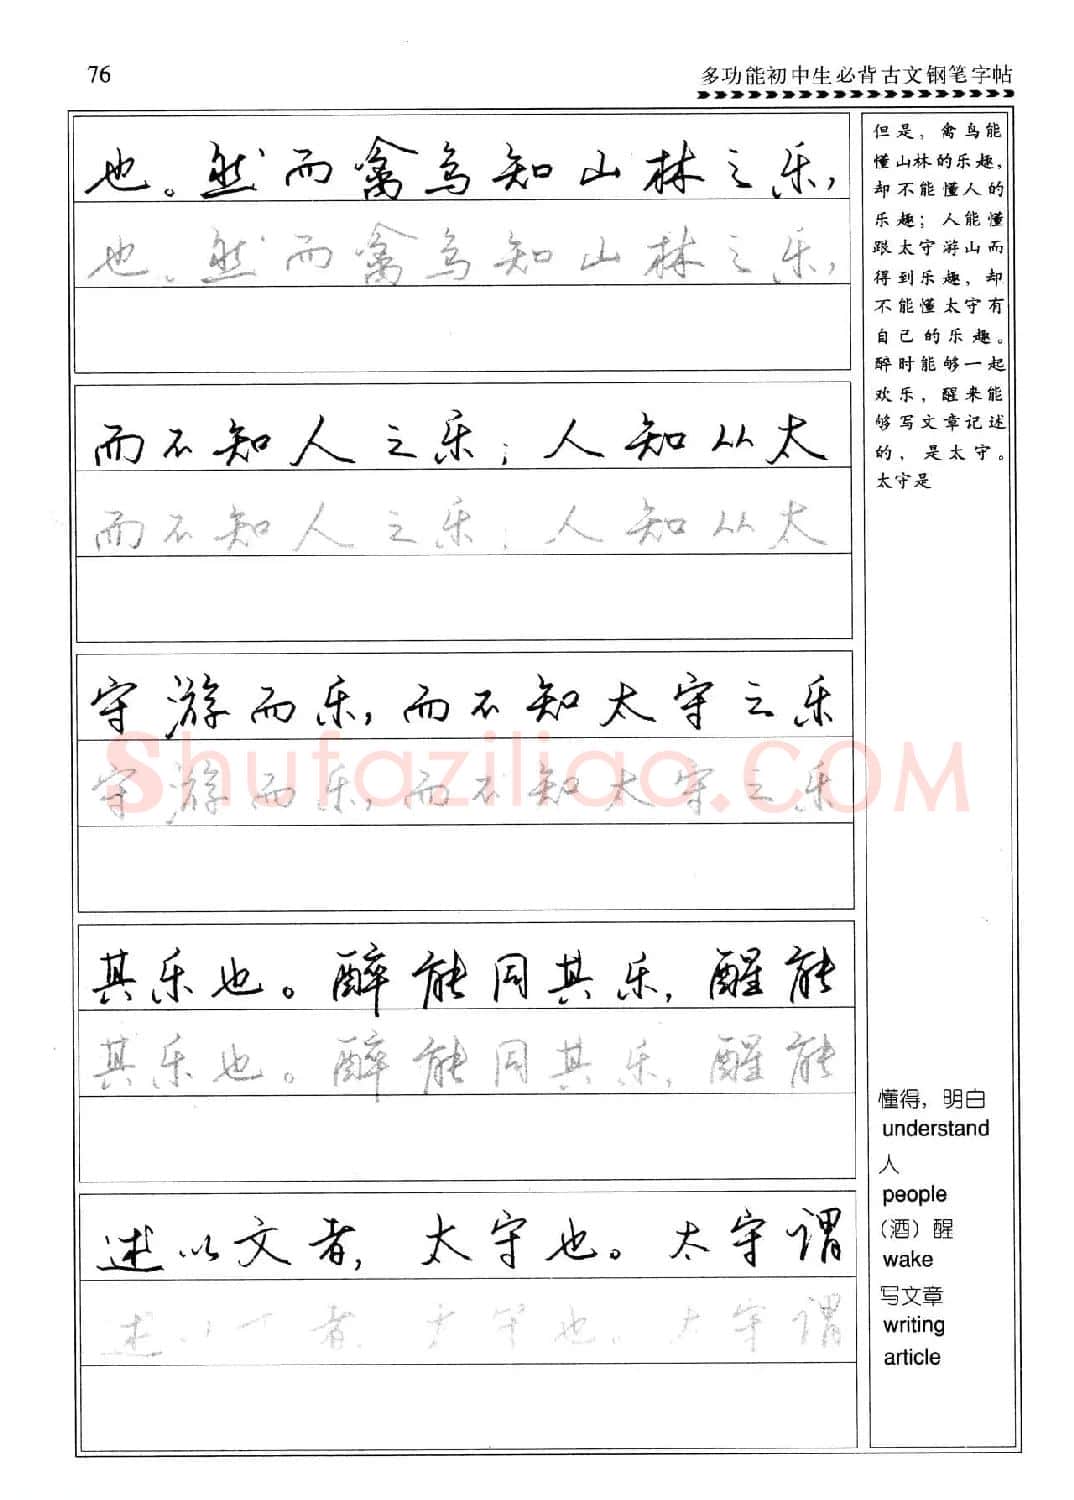 76
多功能初中生必背古文钢笔字帖
也。然而禽鸟知山林之乐,
也。然而禽鸟知山林之乐,
而不知人之乐；人知从太
而不知人之乐；人知从太
守游而乐,而不知太守之乐
守游而乐,而不知太守之乐
Shufaziliao.COM
其乐也。醉能同其乐,醒能
其乐也。醉能同其乐,醒能
述以文者,太守也。太守谓
述以文者,太守也。太守谓
但是，禽鸟能
懂山林的乐趣，
却不能懂人的
乐趣；人能懂
跟太守游山而
得到乐趣，却
不能懂太守有
自己的乐趣。
醉时能够一起
欢乐，醒来能
够写文章记述
的，是太守。
太守是
懂得，明白
understand
人
people
（酒）醒
wake
写文章
writing
article